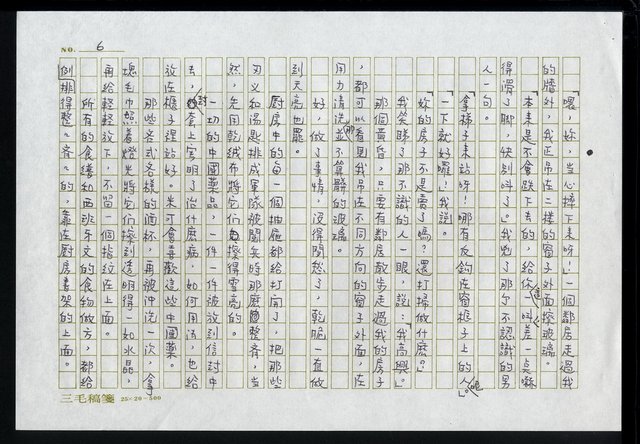 NO. 6
「喂，妳，當心摔下來呀！」一個鄰居走過我
的牆外，我正吊在二樓的窗子外面擦玻璃。
本來是不會跌下去的，給你這一叫差一點嚇
得滑了腳，快別叫了。」我兇了那個不認識的男
人一句。
「拿梯子來站呀！哪有反鈎在窗框子上的人呢。」
「一下就好囉！」我說。
「妳的房子不是賣了嗎？還打掃做什麼。」
我笑睇了那不識的人一眼，說：「我高興。」
那個黃昏，只要有鄰居散步走過我的房子
，都可以看見我吊在不同方向的窗子外面，在
用力清洗那並不算髒的玻璃。
好，做了事情，沒得閒愁了，乾脆一直做
到天亮也罷。
廚房中的每一個抽屜都給打開了，把那些
刀叉和湯匙排成軍隊被閱兵時那麼整齊，當
然，先用乾絨布將它們擦得雪亮的。
一切的中國藥品，一件一件被放到信封中
去，封套上寫明了治什麼病，如何用法，也給
放在櫃子裡站好。朱可會喜歡這些中國藥。
那些各式各樣的酒杯，再被沖洗一次，拿
塊毛巾照着燈光將它們擦到透明得一如水晶，
再給輕輕放下，不留一個指紋在上面。
所有的食譜和西班牙文的食物做方，都給
側排得整整齊齊的，靠在廚房書架的上面。
三毛稿箋 25×20=500